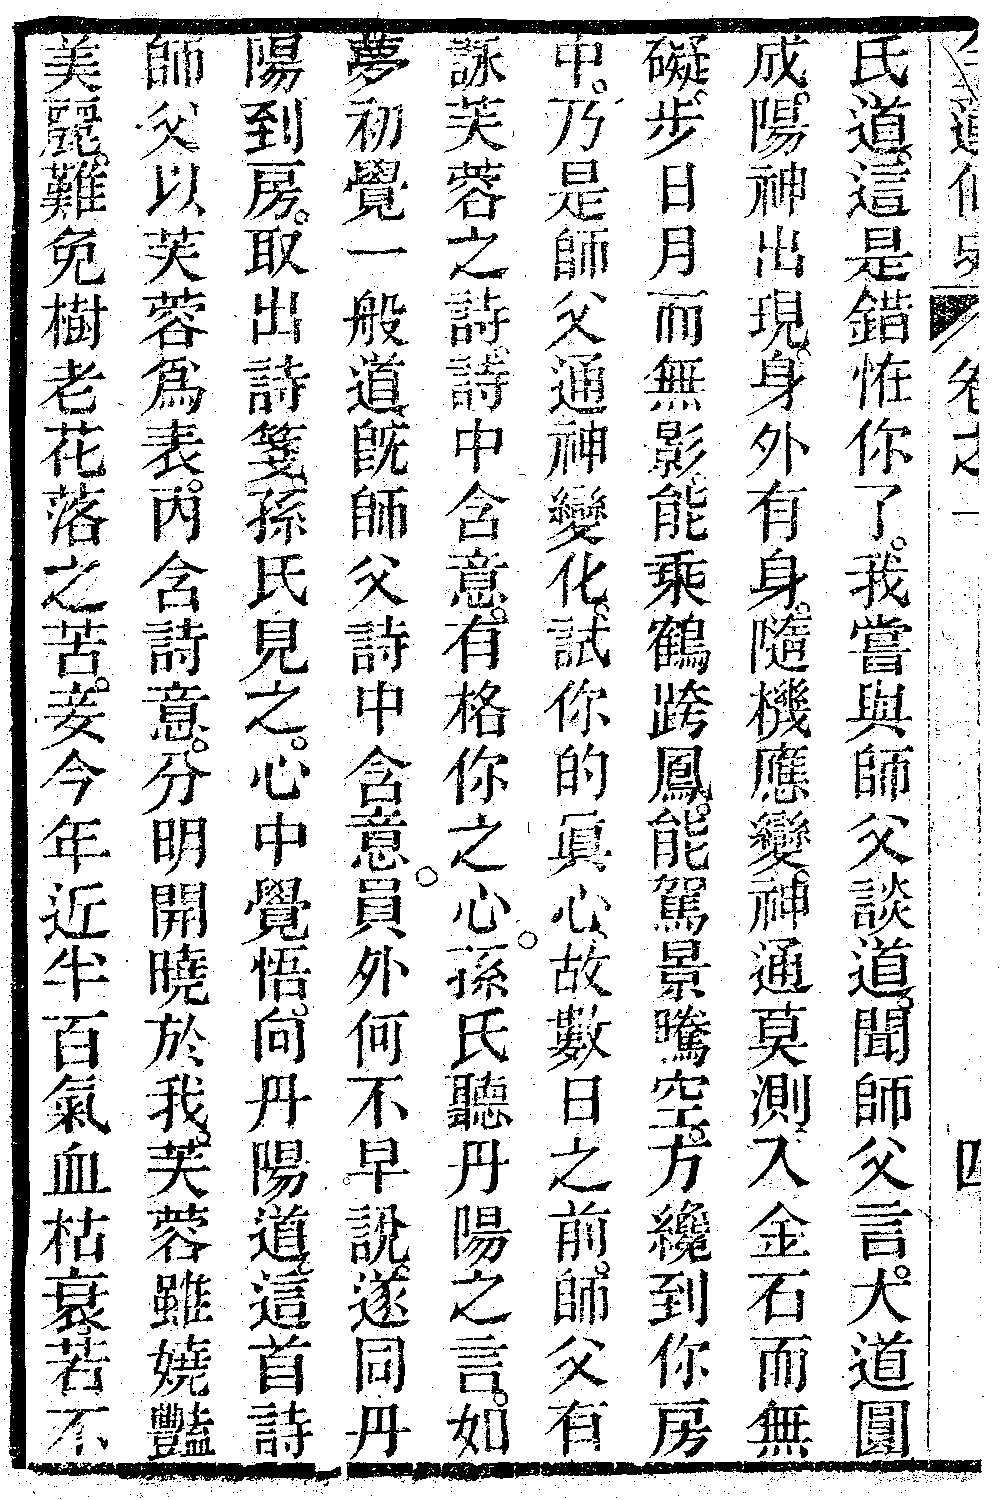 氏道。這是錯恠你了。我嘗與師父談道。聞師父言。大道圓
成。陽神出現。身外有身。隨機應變。神通莫測。入金石而無
礙。步日月而無影。能乘鶴跨鳳。能駕景騰空。方纔到你房
中。乃是師父通神變化。試你的真心。故數日之前。師父有
詠芙蓉之詩。詩中含意。有格你之心。孫氏聽丹陽之言。如
夢初覺一般道。旣師父詩中含意。員外何不早說。遂同丹
陽到房。取出詩箋。孫氏見之。心中覺悟。向丹陽道。這首詩
師父以芙蓉爲表。內含詩意。分明開曉於我。芙蓉雖嬈豔
美麗。難免樹老花落之苦。妾今年近半百。氣血枯衰。若不